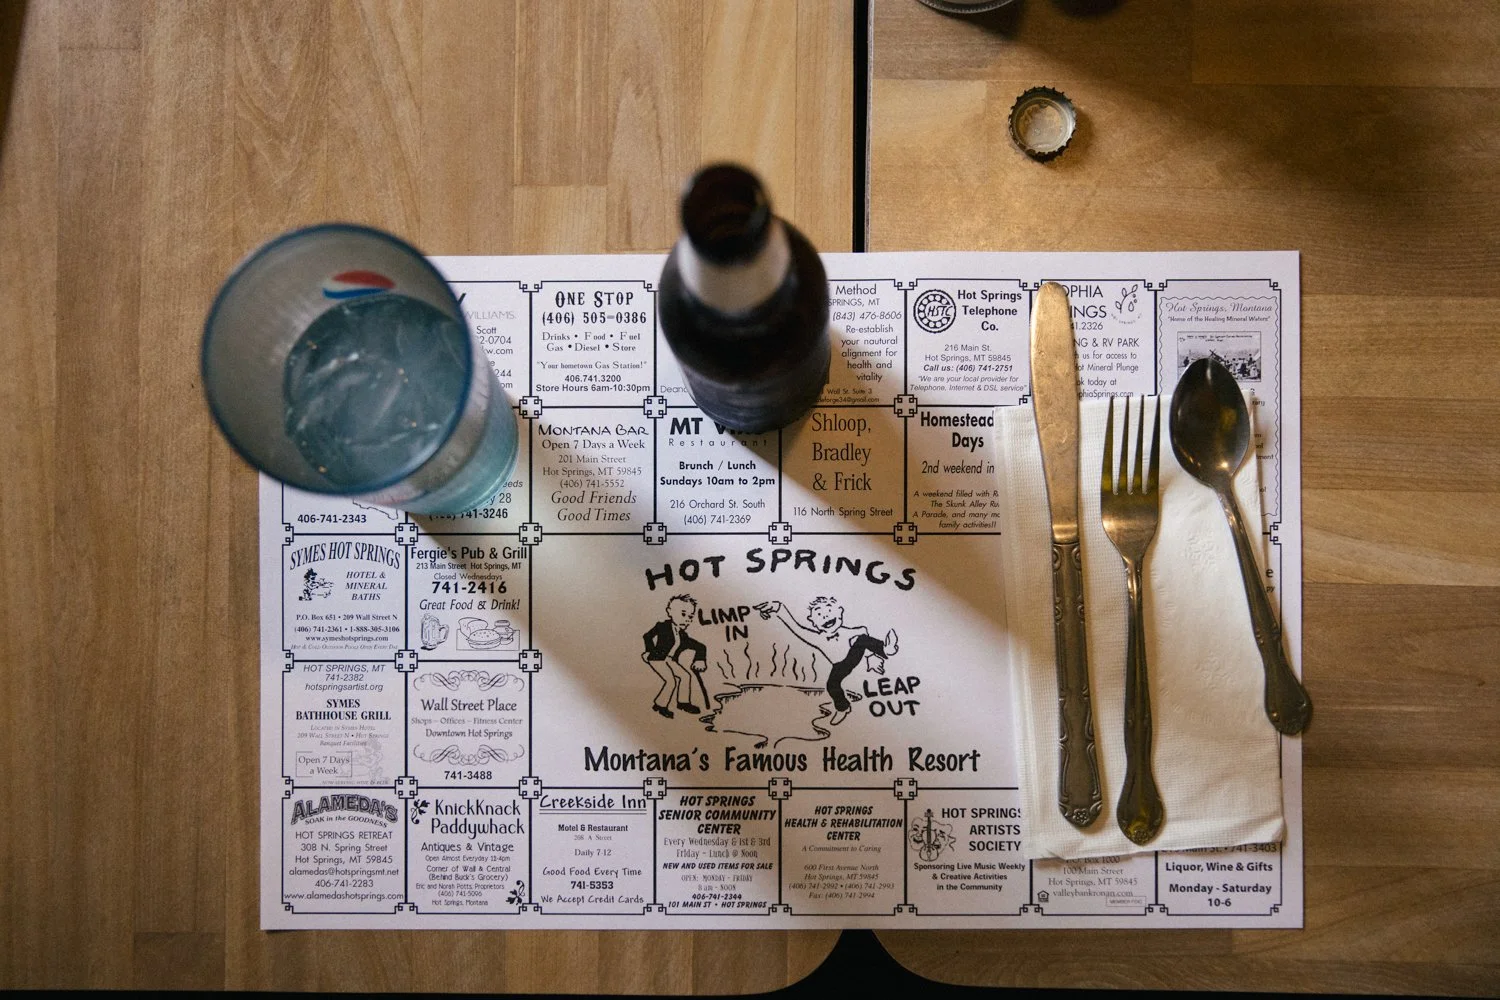 WILLIAMS
Scott
ONE STOP
(406) 505-0386
Drinks • Food • Fuel
Gas • Diesel • Store
"Your hometown Gas Station!"
406.741.3200
Store Hours 6am-10:30pm
Method
SPRINGS, MT
(843) 476-8606
Re-establish
your nautural
alignment for
health and
vitality
Wall St. Suite 3
Hot Springs
Telephone
Co.
HSTC
216 Main St.
Hot Springs, MT 59845
Call us: (406) 741-2751
"We are your local provider for
Telephone, Internet & DSL service"
& RV PARK
us for access to
Mineral Plunge
today at
Hot Springs, Montana
"Home of the Healing Mineral Waters"
406-741-2343
MONTANA BAR
Open 7 Days a Week
201 Main Street
Hot Springs, MT 59845
(406) 741-5552
Good Friends
Good Times
MT
Restaurant
Brunch / Lunch
Sundays 10am to 2pm
216 Orchard St. South
(406) 741-2369
Shloop,
Bradley
& Frick
116 North Spring Street
Homestead
Days
2nd weekend in
A weekend filled with
The Skunk Alley
A Parade, and many
family activities!!
SYMES HOT SPRINGS
HOTEL &
MINERAL
BATHS
P.O. Box 651 • 209 Wall Street N
(406) 741-2361 • 1-888-305-3106
www.symeshotsprings.com
Hot & Cold Outdoor Pools Open Every Day
Fergie's Pub & Grill
213 Main Street Hot Springs, MT
Closed Wednesdays
741-2416
Great Food & Drink!
HOT SPRINGS
LIMP
IN
LEAP
OUT
Montana's Famous Health Resort
HOT SPRINGS, MT
741-2382
hotspringsartist.org
SYMES
BATHHOUSE GRILL
Located in Symes Hotel
209 Wall Street N • Hot Springs
Banquet Facilities
Open 7 Days
a Week
Wall Street Place
Shops – Offices – Fitness Center
Downtown Hot Springs
741-3488
ALAMEDA'S
SOAK in the GOODNESS
HOT SPRINGS RETREAT
308 N. Spring Street
Hot Springs, MT 59845
alamedas@hotspringsmt.net
406-741-2283
www.alamedashotsprings.com
KnickKnack
Paddywhack
Antiques & Vintage
Open Almost Everyday 12-4pm
Corner of Wall & Central
(Behind Buck's Grocery)
Eric and Norah Potts, Proprietors
(406) 741-5096
Hot Springs, Montana
Creekside Inn
Motel & Restaurant
208 A Street
Daily 7-12
Good Food Every Time
741-5353
We Accept Credit Cards
HOT SPRINGS
SENIOR COMMUNITY
CENTER
Every Wednesday & 1st & 3rd
Friday - Lunch @ Noon
NEW AND USED ITEMS FOR SALE
OPEN: MONDAY - FRIDAY
8 am - NOON
406-741-2344
101 MAIN ST • HOT SPRINGS
HOT SPRINGS
HEALTH & REHABILITATION
CENTER
A Commitment to Caring
600 First Avenue North
Hot Springs, MT 59845
(406) 741-2992 • (406) 741-2993
Fax: (406) 741-2994
HOT SPRINGS
ARTISTS
SOCIETY
Sponsoring Live Music Weekly
& Creative Activities
in the Community
PO Box 1000
100 Main Street
Hot Springs, MT 59845
valleybankronan.com
MEMBER FDIC
741-3403
Liquor, Wine & Gifts
Monday - Saturday
10-6